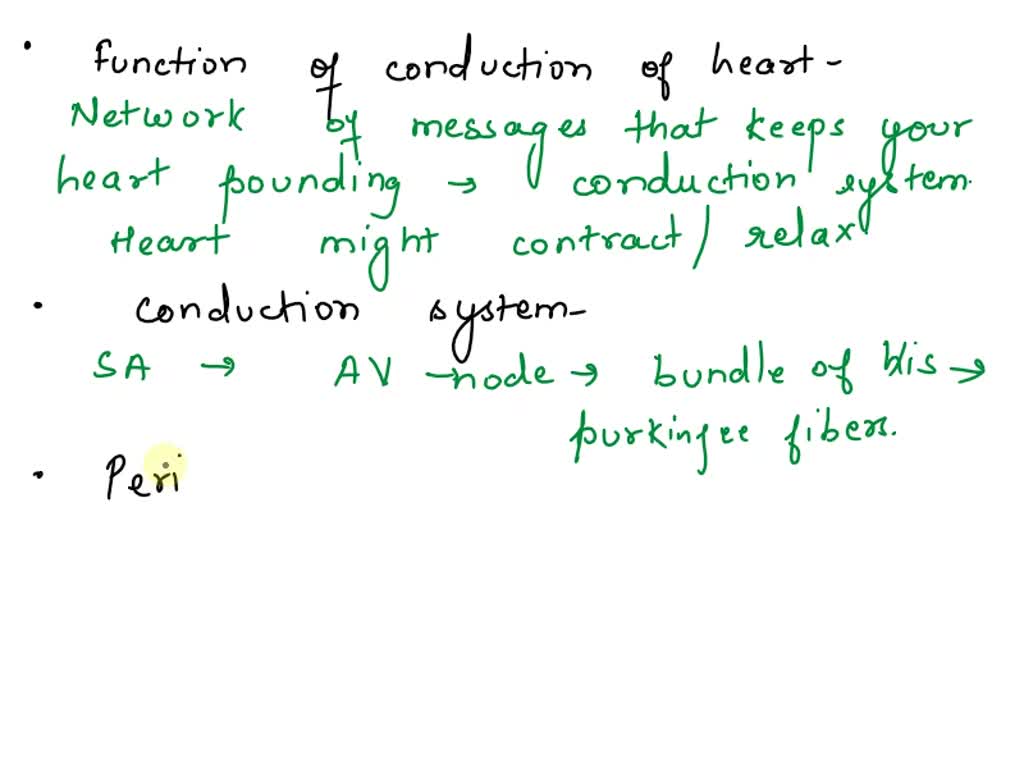 • function of conduction of heart-
Network of messages that keeps your
heart pounding → conduction system.
Heart might contract/ relax
• conduction system-
SA → AV -node → bundle of His →
purkingee fibers.
• Peri